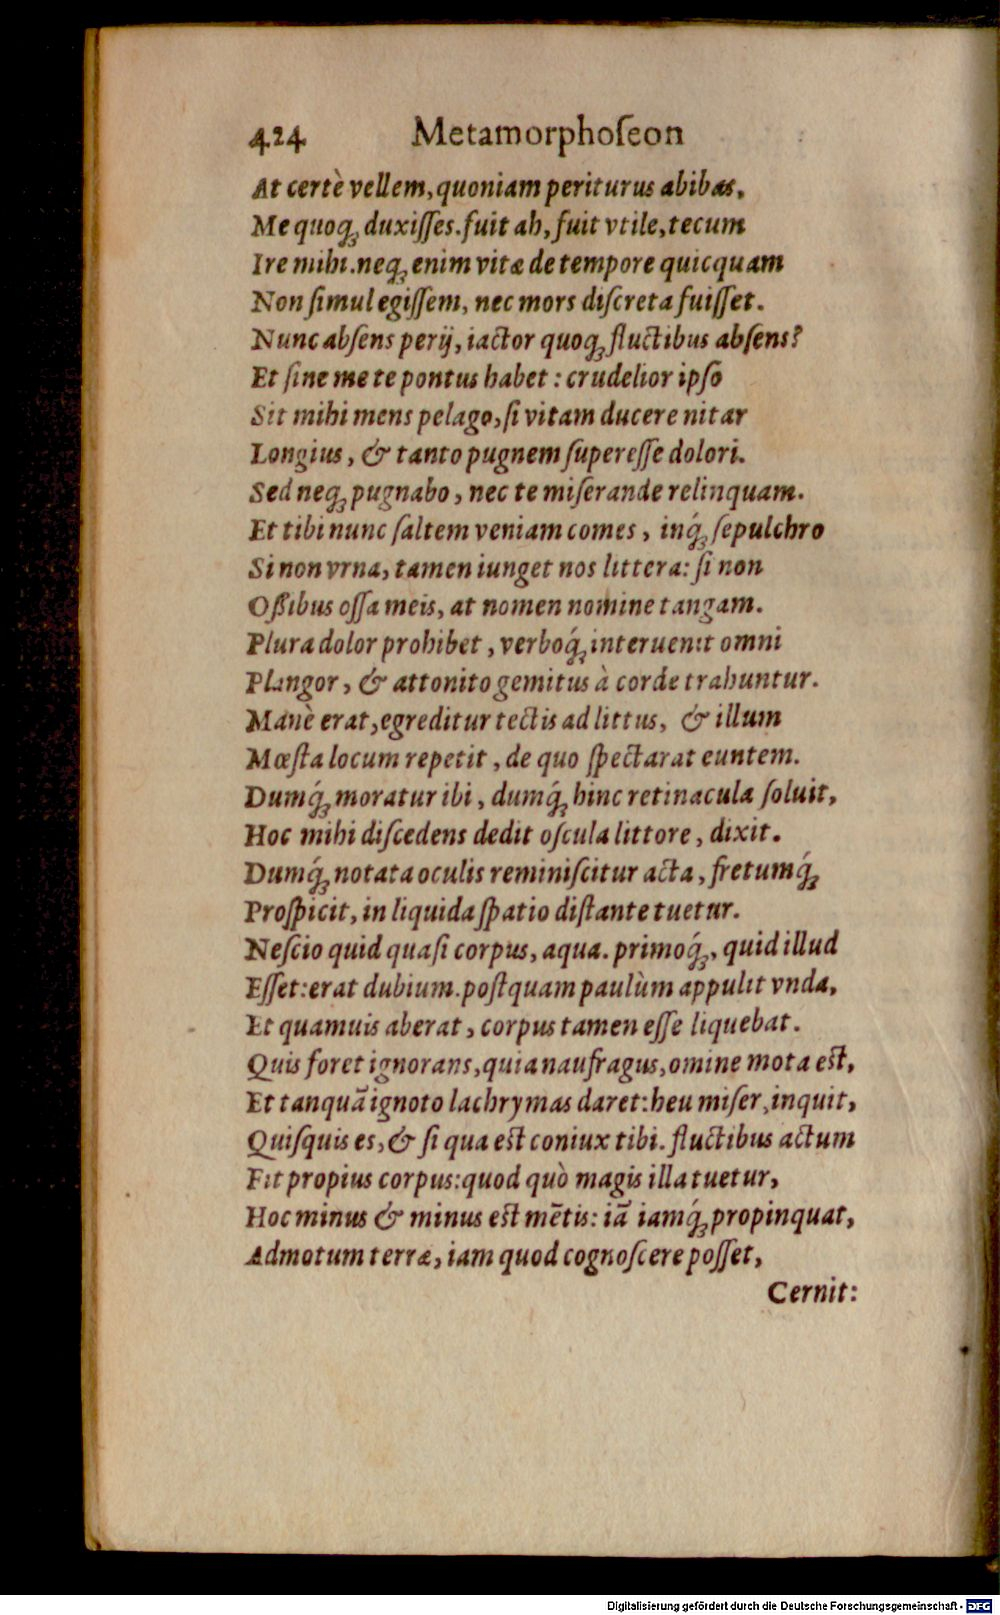 424 Metamorphoſeon
At certè vellem, quoniam periturus abibas,
Me quoq́; duxiſſes. fuit ah, fuit vtile, tecum
Ire mihi. neq; enim vitæ de tempore quicquam
Non ſimul egiſſem, nec mors diſcreta fuiſſet.
Nunc abſens perij, iactor quoq; fluctibus abſens?
Et ſine me te pontus habet: crudelior ipſo
Sit mihi mens pelago, ſi vitam ducere nitar
Longius, & tanto pugnem ſupereſſe dolori.
Sed neq; pugnabo, nec te miſerande relinquam.
Et tibi nunc ſaltem veniam comes, inq́; ſepulchro
Si non vrna, tamen iunget nos littera: ſi non
Oßibus oſſa meis, at nomen nomine tangam.
Plura dolor prohibet, verboq́; interuenit omni
Plangor, & attonito gemitus à corde trahuntur.
Manè erat, egreditur tectis ad littus, & illum
Mœſta locum repetit, de quo ſpectarat euntem.
Dumq́; moratur ibi, dumq́; hinc retinacula ſoluit,
Hoc mihi diſcedens dedit oſcula littore, dixit.
Dumq́; notata oculis reminiſcitur acta, fretumq́;
Proſpicit, in liquida ſpatio diſtante tuetur.
Neſcio quid quaſi corpus, aqua. primoq́;, quid illud
Eſſet: erat dubium. poſtquam paulùm appulit vnda,
Et quamuis aberat, corpus tamen eſſe liquebat.
Quis foret ignorans, quia naufragus, omine mota eſt,
Et tanquā ignoto lachrymas daret: heu miſer, inquit,
Quiſquis es, & ſi qua eſt coniux tibi. fluctibus actum
Fit propius corpus: quod quò magis illa tuetur,
Hoc minus & minus eſt mētis: iā iamq́; propinquat,
Admotum terræ, iam quod cognoſcere poſſet,
Cernit:
Digitalisierung gefördert durch die Deutsche Forschungsgemeinschaft - DFG